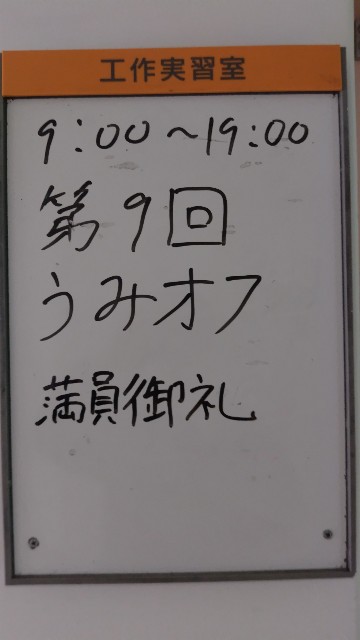 工作実習室
9:00～19:00
第9回
うみオフ
満員御礼